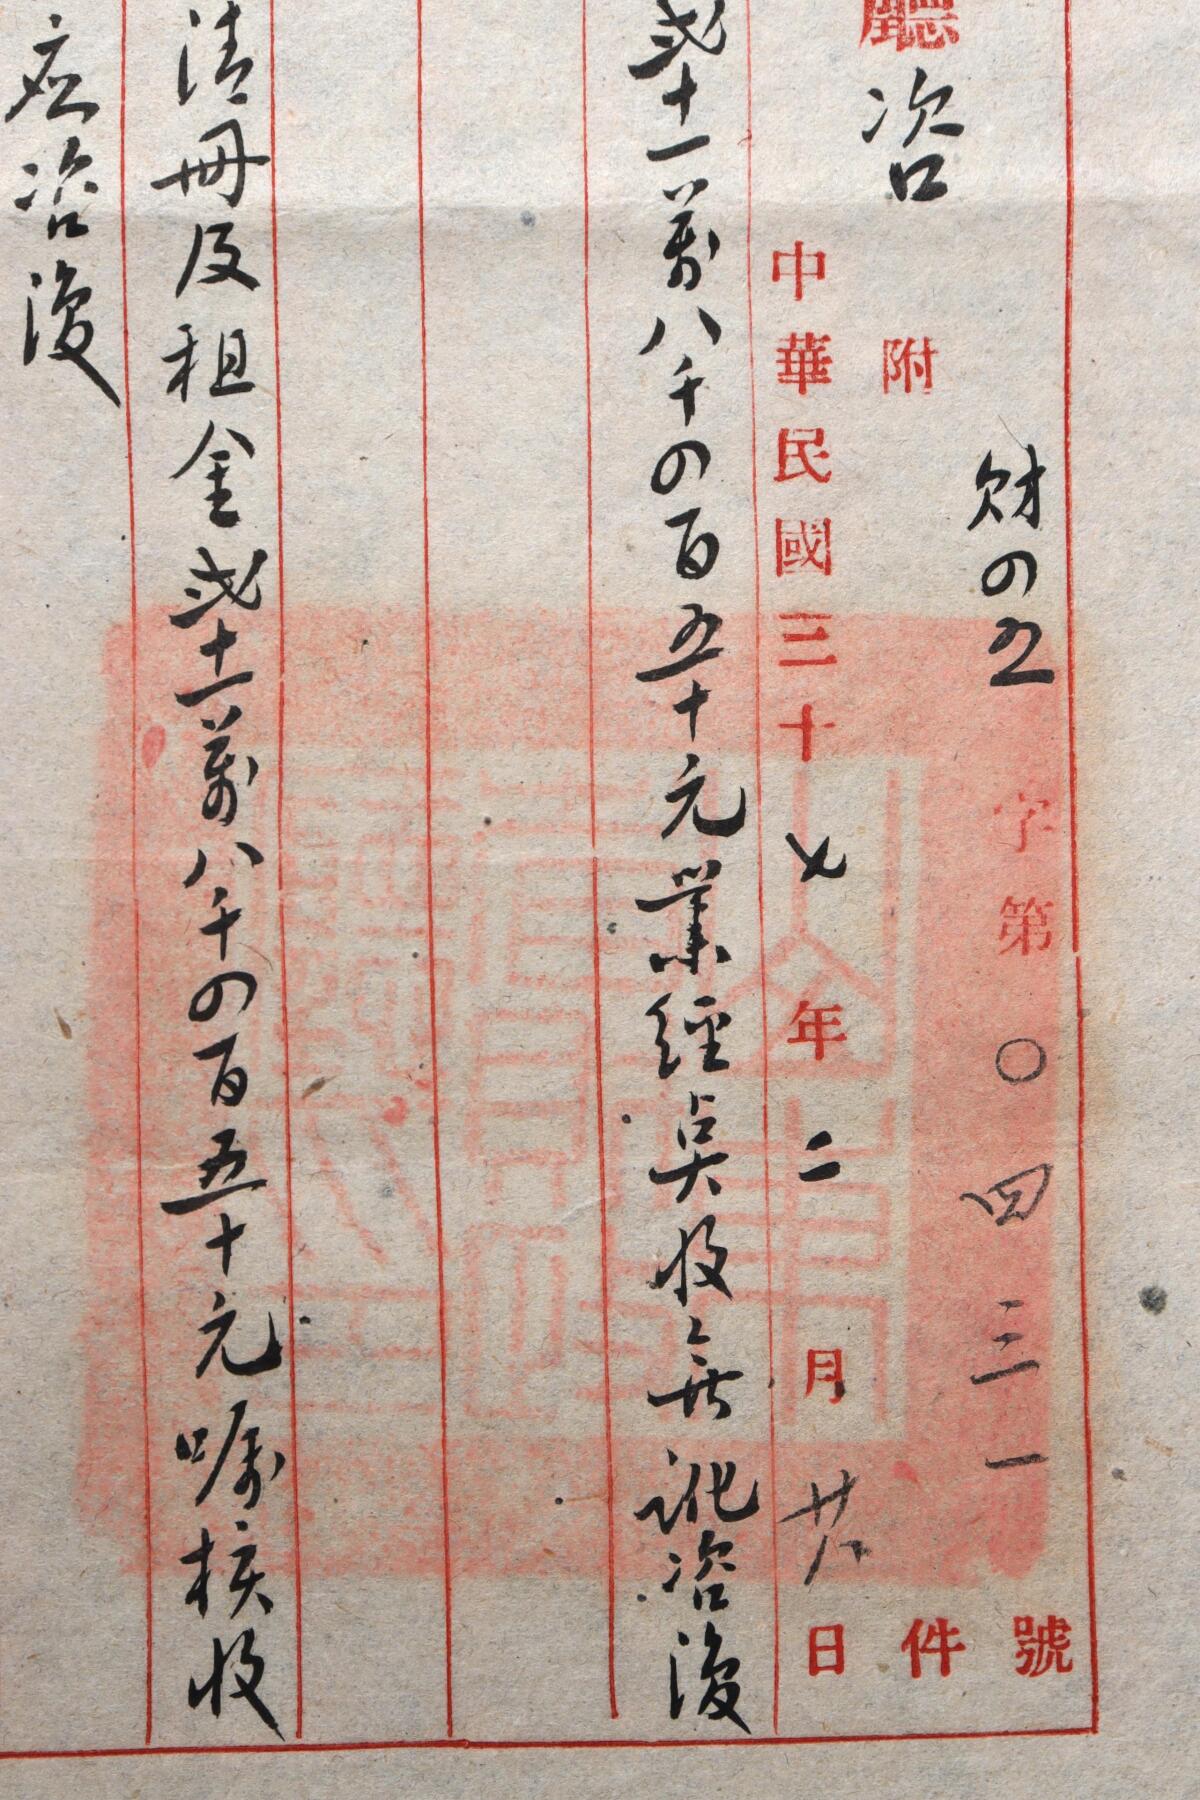 財四五字第〇四三一號
廳咨 附 件
中華民國三十七年二月廿八日
弍十一萬八千四百五十元業經點收無訛咨復
清冊及租金弍十一萬八千四百五十元囑核收
應咨復